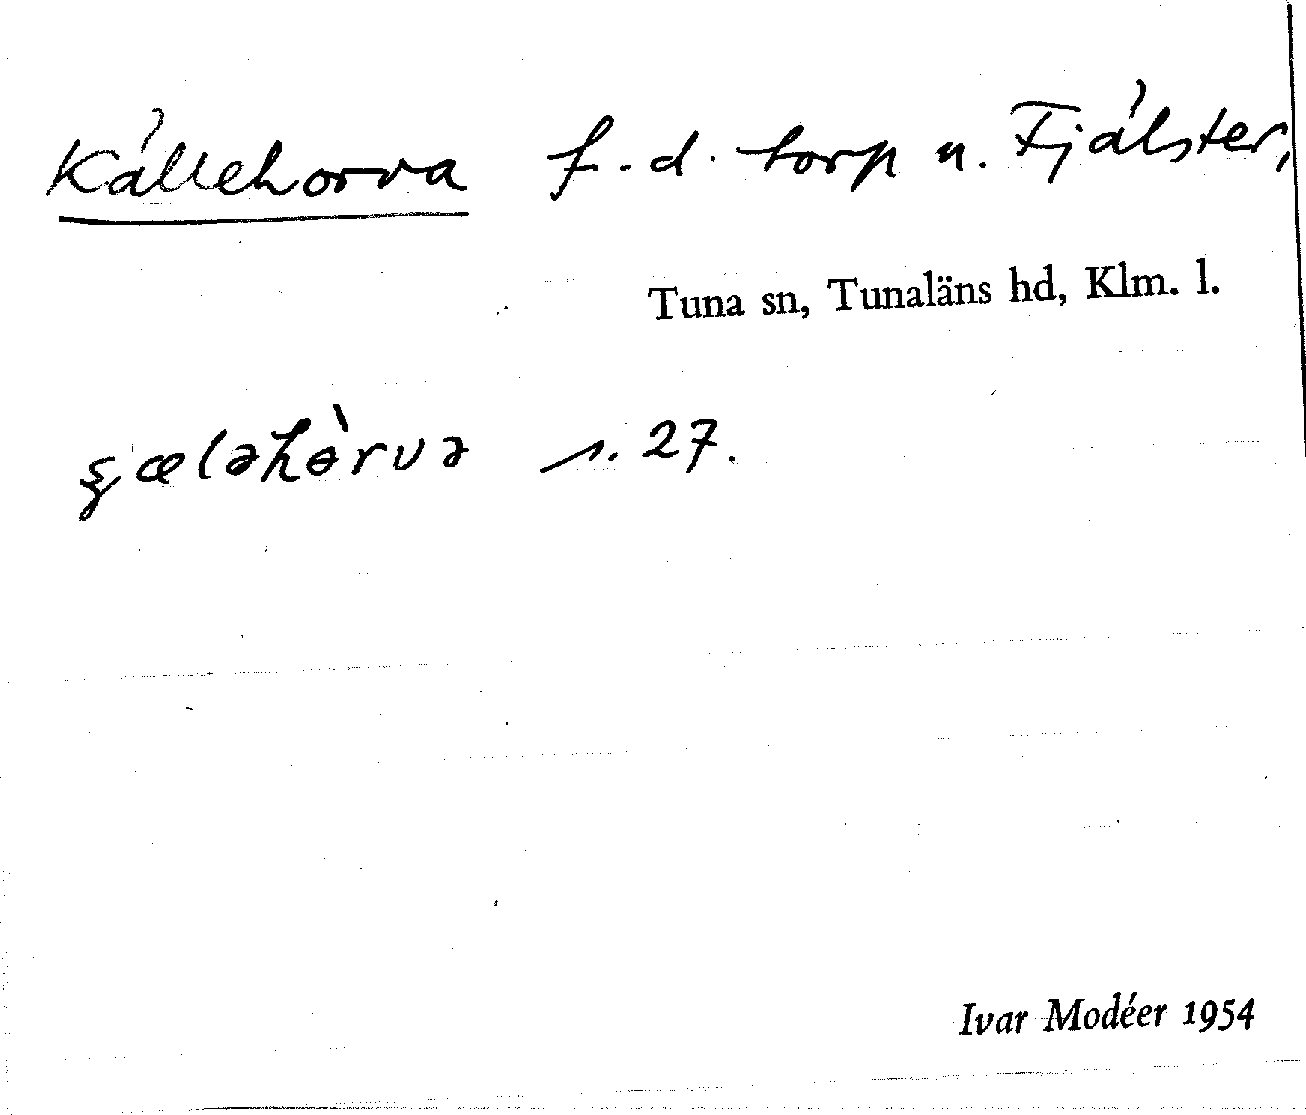 Källehorva f.d. torp u. Fjälster,
Tuna sn, Tunaläns hd, Klm. l.
s. 27.
Ivar Modéer 1954